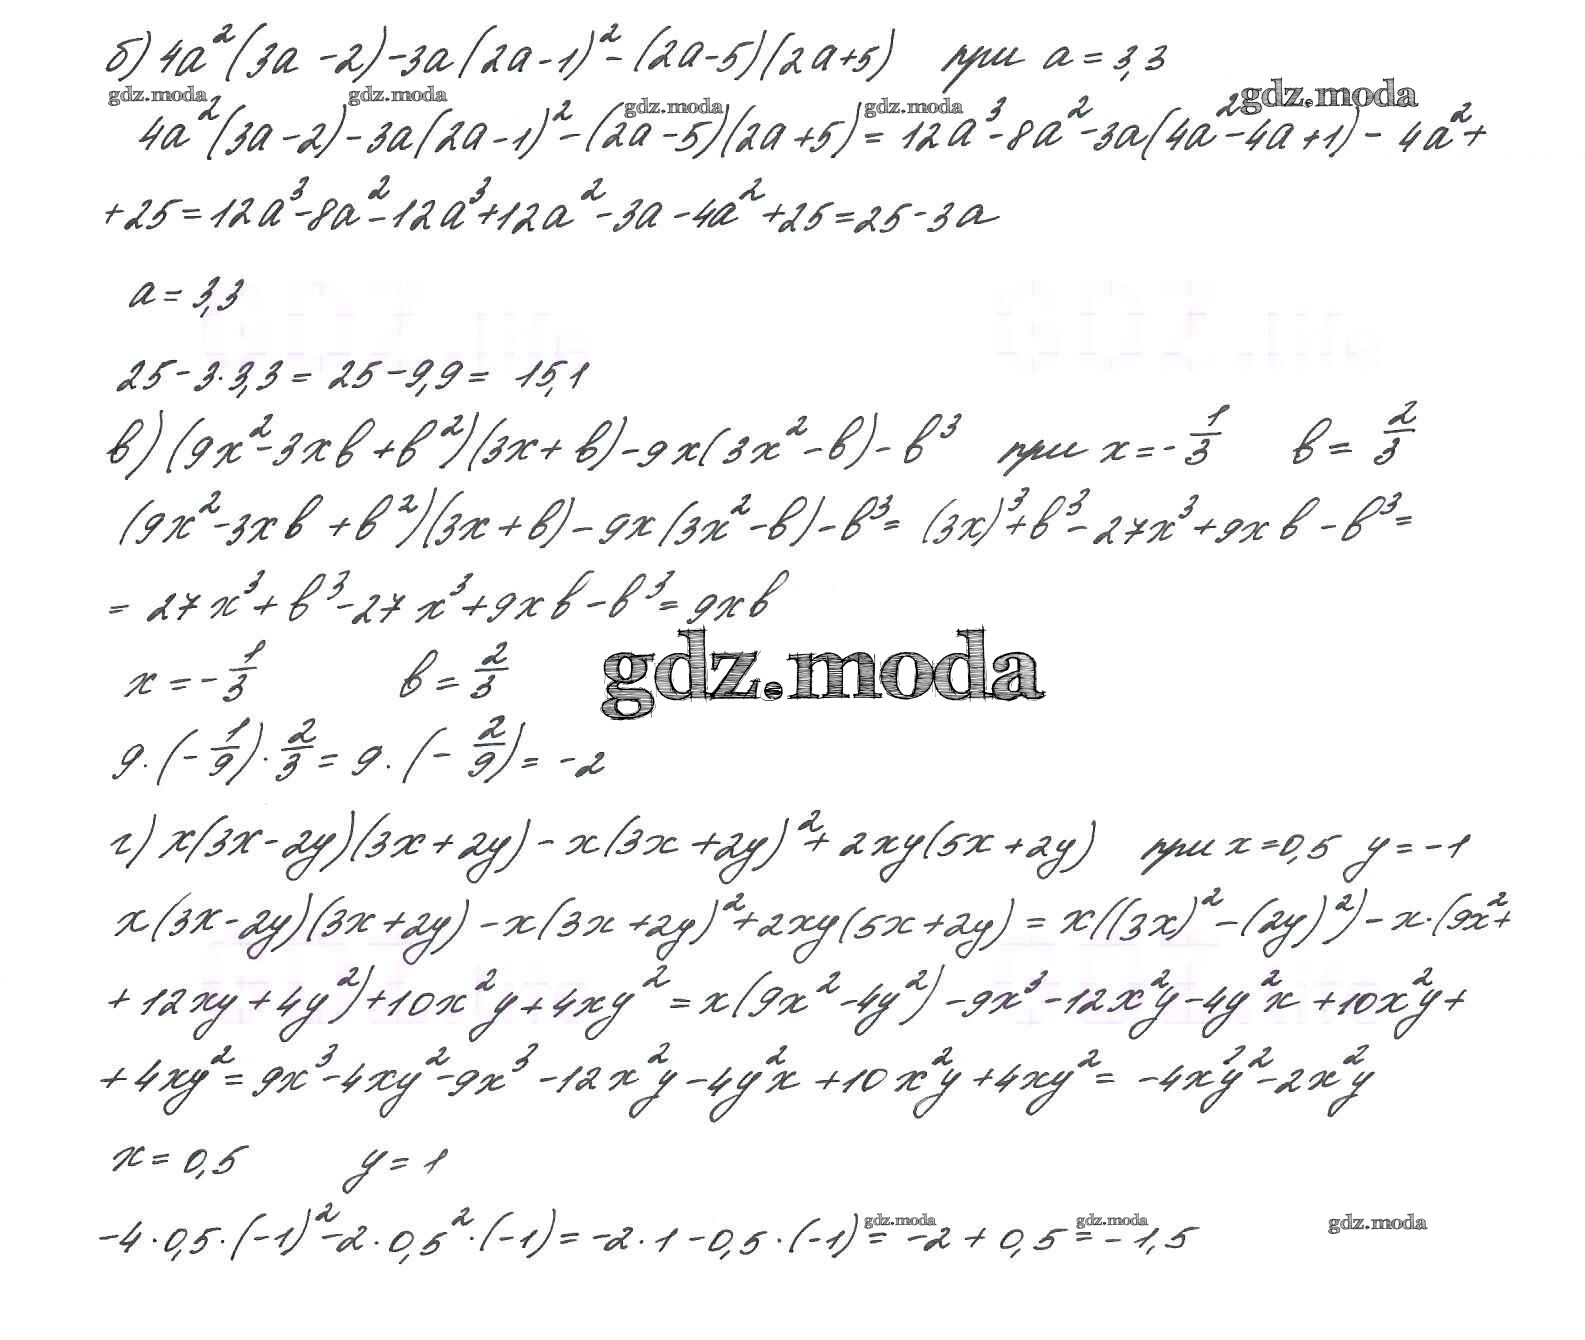 б) 4a²(3a-2)-3a(2a-1)²-(2a-5)(2a+5) при a=3,3
gdz.moda gdz.moda gdz.moda gdz.moda gdz.moda
4a²(3a-2)-3a(2a-1)²-(2a-5)(2a+5)=12a³-8a²-3a(4a²-4a+1)-4a²+
+25=12a³-8a²-12a³+12a²-3a-4a²+25=25-3a
a=3,3
25-3·3,3=25-9,9=15,1
в) (9x²-3xв+в²)(3x+в)-9x(3x²-в)-в³ при x=-1/3 в=2/3
(9x²-3xв+в²)(3x+в)-9x(3x²-в)-в³=(3x)³+в³-27x³+9xв-в³=
=27x³+в³-27x³+9xв-в³=9xв
x=-1/3 в=2/3
gdz.moda
9·(-1/9)·2/3=9·(-2/9)=-2
г) x(3x-2y)(3x+2y)-x(3x+2y)²+2xy(5x+2y) при x=0,5 y=-1
x(3x-2y)(3x+2y)-x(3x+2y)²+2xy(5x+2y)=x((3x)²-(2y)²)-x·(9x²+
+12xy+4y²)+10x²y+4xy²=x(9x²-4y²)-9x³-12x²y-4y²x+10x²y+
+4xy²=9x³-4xy²-9x³-12x²y-4y²x+10x²y+4xy²=-4xy²-2x²y
x=0,5 y=1
-4·0,5·(-1)²-2·0,5²·(-1)=-2·1-0,5·(-1)=-2+0,5=-1,5
gdz.moda gdz.moda gdz.moda